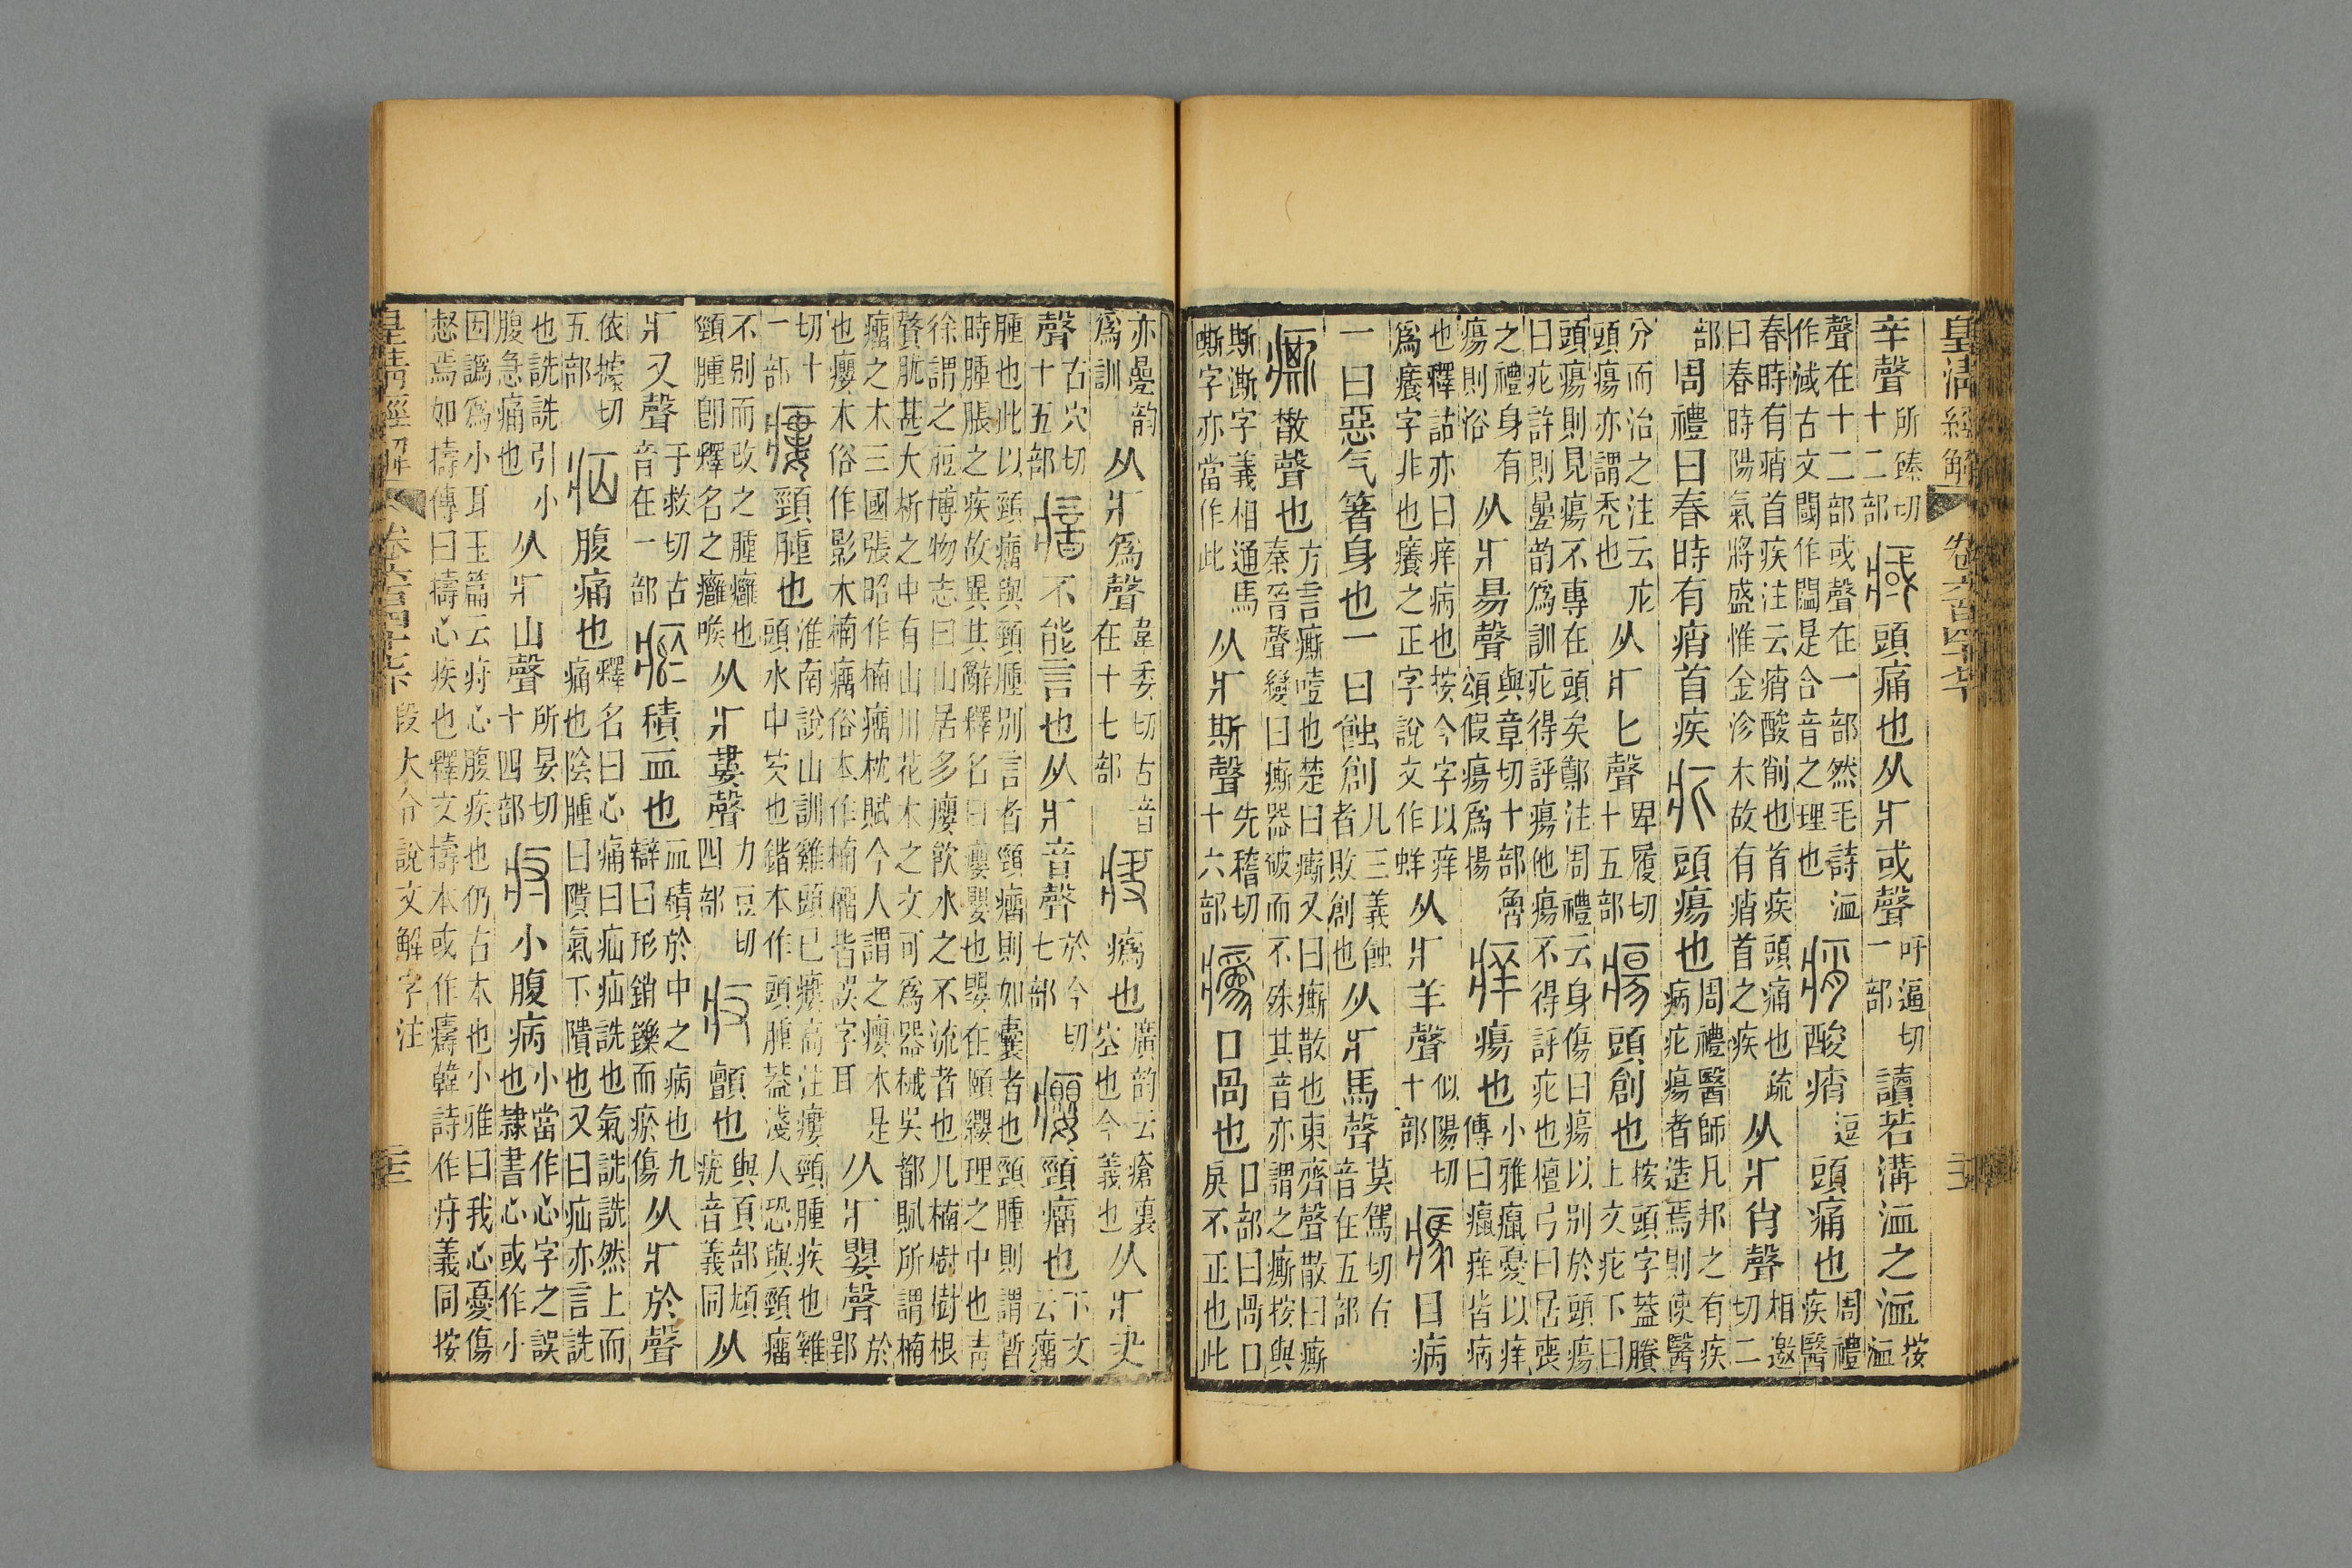 皇清經解 卷六百四十七下 三
辛聲所臻切十二部 㽣 頭痛也从疒或聲吁逼切一部讀若溝洫之洫按洫
聲在十二部或聲在一部然毛詩洫作淢古文閾作䦗是合音之理也 痟 酸痟逗頭痛也周禮疾醫
春時有痟首疾注云痟酸削也首疾頭痛也疏曰春時陽氣將盛惟金沴木故有痟首之疾从疒肖聲相邀切二
部周禮曰春時有痟首疾 疕 頭瘍也周禮醫師凡邦之有疾病疕瘍者造焉則使醫
分而治之注云疕頭瘍亦謂禿也从疒匕聲卑履切十五部 瘍 頭創也按頭字蓋賸上文疕下曰
頭瘍則見瘍不專在頭矣鄭注周禮云身傷曰瘍以別於頭瘍曰疕許則㬪韵爲訓疕得評瘍他瘍不得評疕也檀弓曰居喪
之禮身有瘍則浴从疒昜聲與章切十部魯頌假瘍爲揚 痒 瘍也小雅癙憂以痒傳曰癙痒皆病
也釋詁亦曰痒病也按今字以痒爲癢字非也癢之正字說文作蛘从疒羊聲似陽切十部 㾺 目病
一曰惡气箸身也一曰蝕創几三義蝕者敗創也从疒馬聲莫駕切古音在五部
㾷 散聲也方言㾷噎也楚曰㾷又曰㾷散也東齊聲散曰㾷秦晉聲變曰㾷器破而不殊其音亦謂之㾷按與
斯澌字義相通馬嘶字亦當作此从疒斯聲先稽切十六部 㾻 口咼也口部曰咼口戾不正也此
亦㬪韵爲訓从疒爲聲韋委切古音在十七部 疦 㾻也廣韵云瘡裏空也今義也从疒夬
聲古穴切十五部 瘖 不能言也从疒音聲於今切七部 癭 頸瘤也下文云瘤
腫也此以頸瘤與頸腫別言者頸瘤則如囊者也頸腫則謂暫時腫脹之疾故異其辭釋名曰癭嬰也嬰在頤纓理之中也靑
徐謂之䐉博物志曰山居多癭飮水之不流者也几楠樹樹根贅肬甚大析之中有山川花木之文可爲器械吳都賦所謂楠
瘤之木三國張昭作楠瘤枕賦今人謂之癭木是也癭木俗作影木楠瘤俗本作楠榴皆誤字耳从疒嬰聲於郢
切十一部 瘻 頸腫也淮南說山訓雞頭已瘻高注瘻頸腫疾也雞頭水中芡也鍇本作頭腫蓋淺人恐與頸瘤
不別而改之腫癰也頸腫卽釋名之癰喉从疒婁聲力豆切四部 疻 顫也與頁部頄疣音義同从
疒又聲于救切古音在一部 瘀 積血也血積於中之病也九辯曰形銷鑠而瘀傷从疒於聲
依據切五部 疝 腹痛也釋名曰心痛曰疝疝詵也氣詵詵然上而痛也陰腫曰隤氣下隤也又曰疝亦言詵
也詵詵引小腹急痛也从疒山聲所晏切十四部 疛 小腹病小當作心心字之誤也隸書心或作小
因譌爲小耳玉篇云疛心腹疾也仍古本也小雅曰我心憂傷惄焉如擣傳曰擣心疾也釋文擣本或作㿒韓詩作疛義同按
皇清經解 卷六百四十七下 段大令說文解字注 三